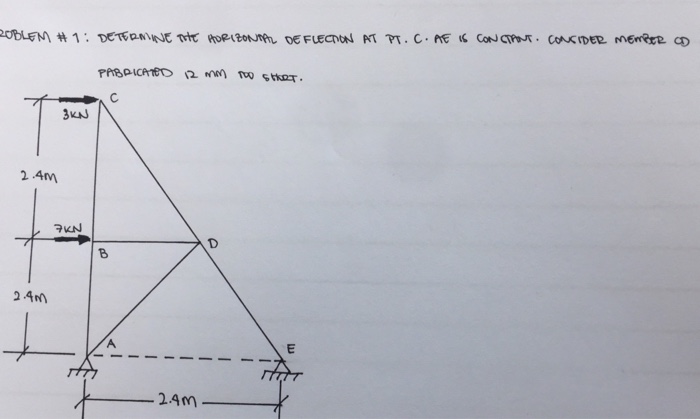 PROBLEM # 1: DETERMINE THE HORIZONTAL DEFLECTION AT PT. C. AE IS CONSTANT. CONSIDER MEMBER CD
FABRICATED 12 mm TOO SHORT.
C
3KN
2.4m
7KN
D
B
2.4m
A
E
2.4m